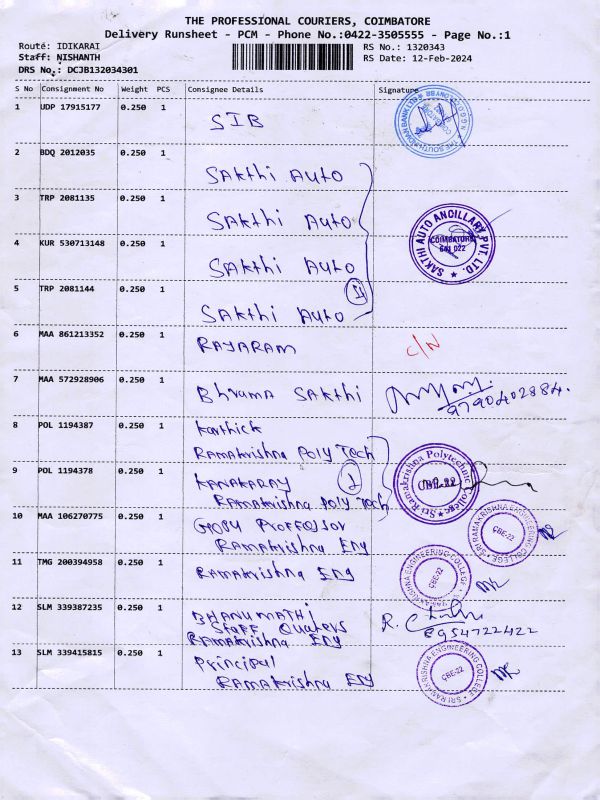 THE PROFESSIONAL COURIERS, COIMBATORE
Delivery Runsheet - PCM - Phone No.:0422-3505555 - Page No.:1
Route: IDIKARAI
RS No.: 1320343
Staff: NISHANTH
RS Date: 12-Feb-2024
DRS No.: DCJB132034301
S No Consignment No Weight PCS Consignee Details Signature
1 UDP 17915177 0.250 1 SIB
2 BDQ 2012035 0.250 1 SAkthi Auto
3 TRP 2081135 0.250 1 SAkthi Auto
SAKTHI AUTO ANCILLARY PVT. LTD.
COIMBATORE
641 022
4 KUR 530713148 0.250 1 SAkthi Auto
5 TRP 2081144 0.250 1 SAkthi Auto
6 MAA 861213352 0.250 1 RAYARAM C/N
7 MAA 572928906 0.250 1 Bhrama SAkthi
9790402884.
8 POL 1194387 0.250 1 Karthick
RAMAkrishna Poly Tech
9 POL 1194378 0.250 1 KANAKARAY
RAMAkrishna Poly Tech
Sri Ramakrishna Polytechnic College
10 MAA 106270775 0.250 1 GOPU Proffossor
RAMAkrishna Eng
SRI RAMAKRISHNA ENGINEERING COLLEGE
CBE-22
11 TMG 200394958 0.250 1 RAMAkrishna Eng
SRI RAMAKRISHNA ENGINEERING COLLEGE
CBE-22
12 SLM 339387235 0.250 1 BHANUMATHI
Staff Quaters
RAMAkrishna Eng
8954722422
13 SLM 339415815 0.250 1 Principal
RAMAkrishna Eng
SRI RAMAKRISHNA ENGINEERING COLLEGE
CBE-22